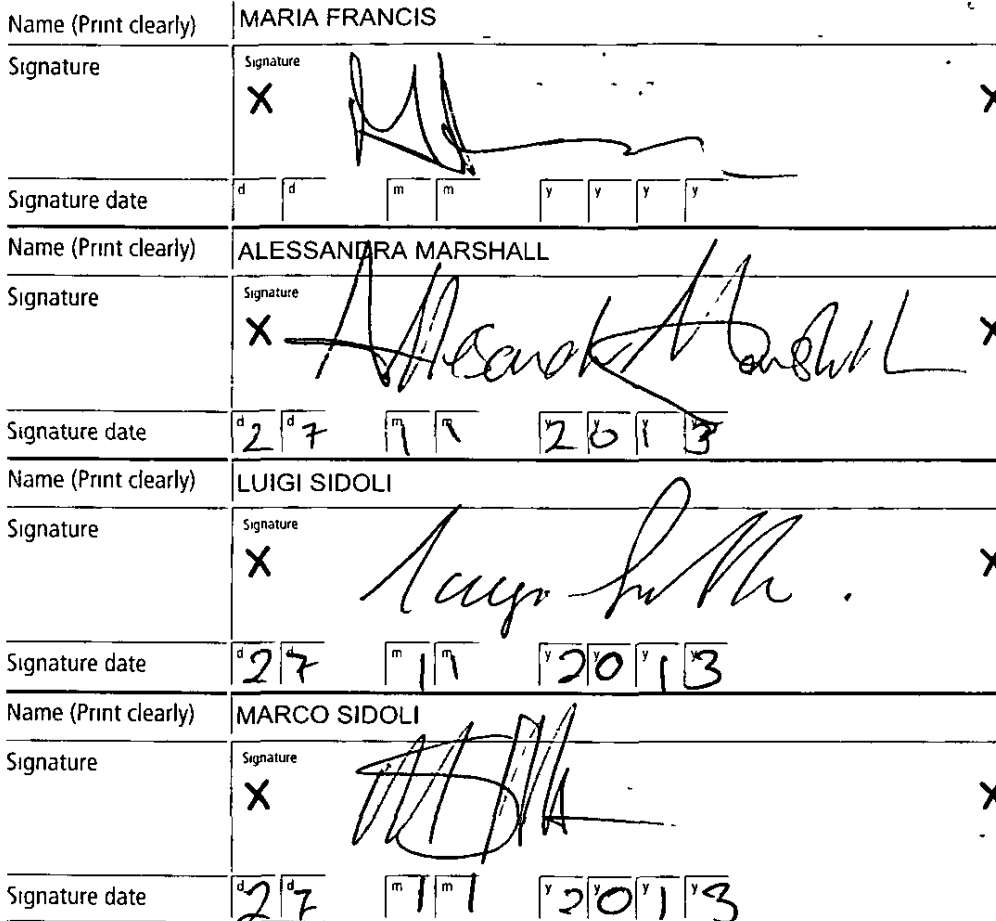 Name (Print clearly) MARIA FRANCIS
Signature Signature
X X
Signature date d d m m y y y y
Name (Print clearly) ALESSANDRA MARSHALL
Signature Signature
X Alessandra Marshall X
Signature date d 2 d 7 m 1 m 1 y 2 y 0 y 1 y 3
Name (Print clearly) LUIGI SIDOLI
Signature Signature
X X
Signature date d 2 d 7 m 1 m 1 y 2 y 0 y 1 y 3
Name (Print clearly) MARCO SIDOLI
Signature Signature
X X
Signature date d 2 d 7 m 1 m 1 y 2 y 0 y 1 y 3